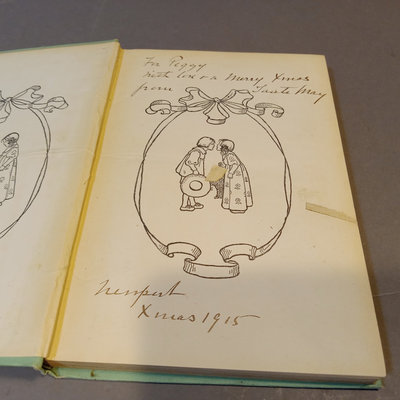 For Peggy
with love & a Merry Xmas
from Tante May
Newport
Xmas 1915